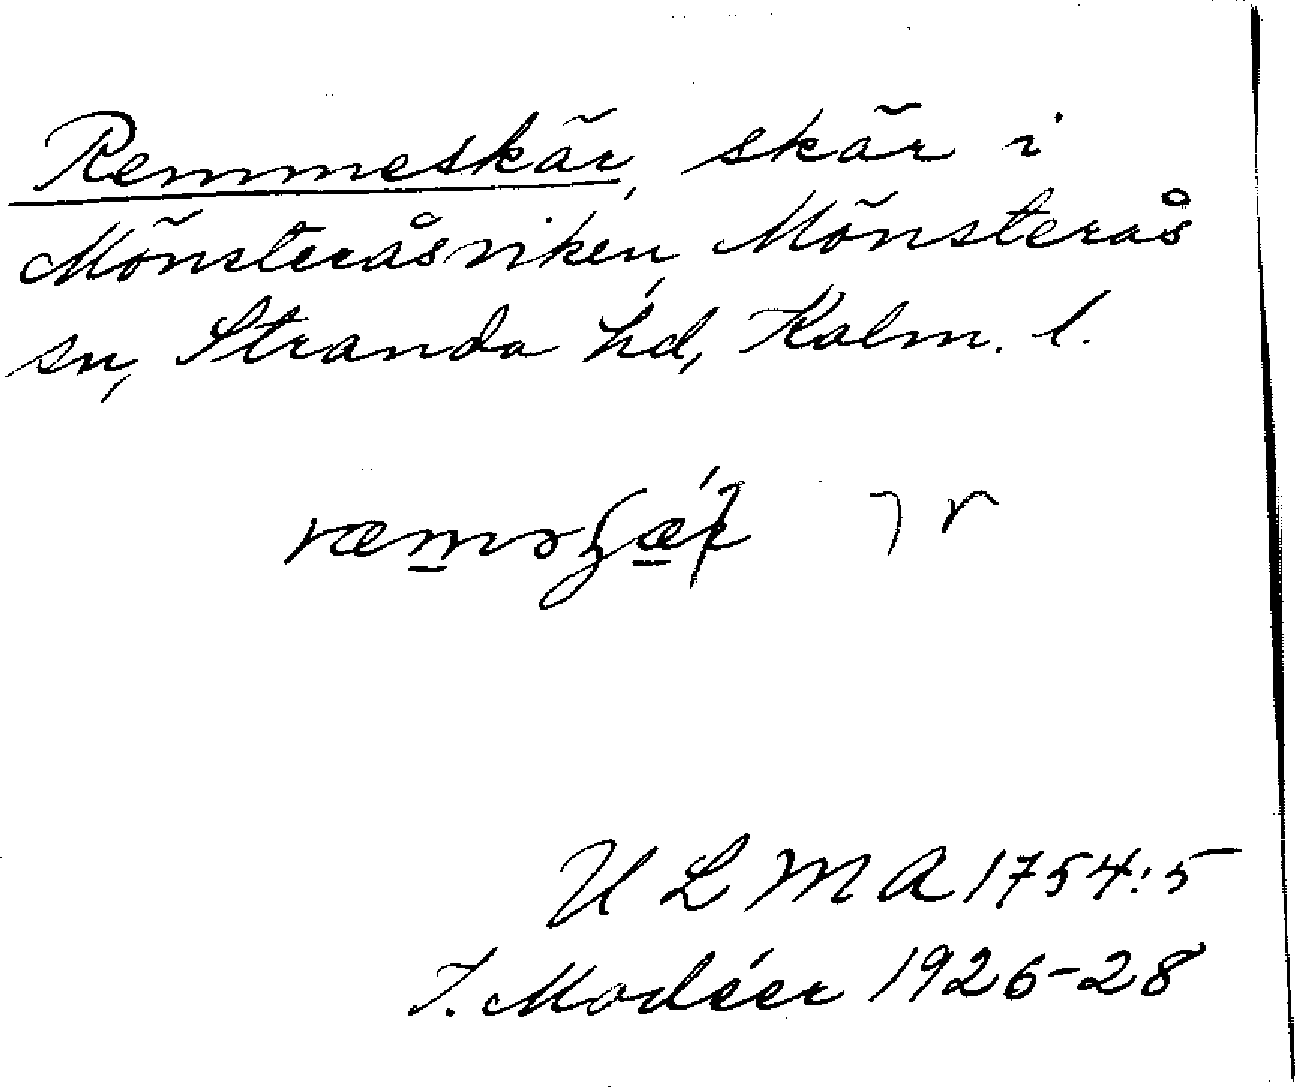 Remmeskär, skär i
Mönsteråsviken, Mönsterås
sn, Stranda hd, Kalm. l.
ULMA 1754:5
I. Modéer 1926-28